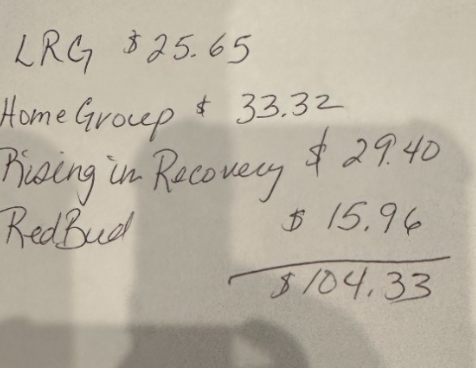 LRG $25.65
Home Group $ 33.32
Rising in Recovery $ 29.40
RedBud $ 15.96
$104.33